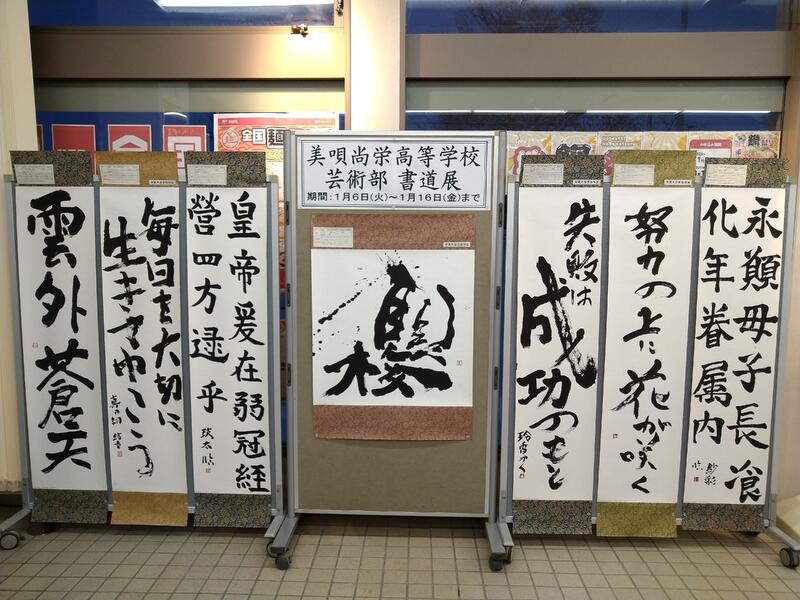 美唄尚栄高等学校
芸術部 書道展
期間:1月6日(火)～1月16日(金)まで
雲外蒼天
毎日を大切に
生きてゆこう
皇帝爰在弱冠経
營四方逮乎
櫻
失敗は
成功のもと
努力の上に
花が咲く
永顚母子長湌
化年眷属内
紗彩
全国麺